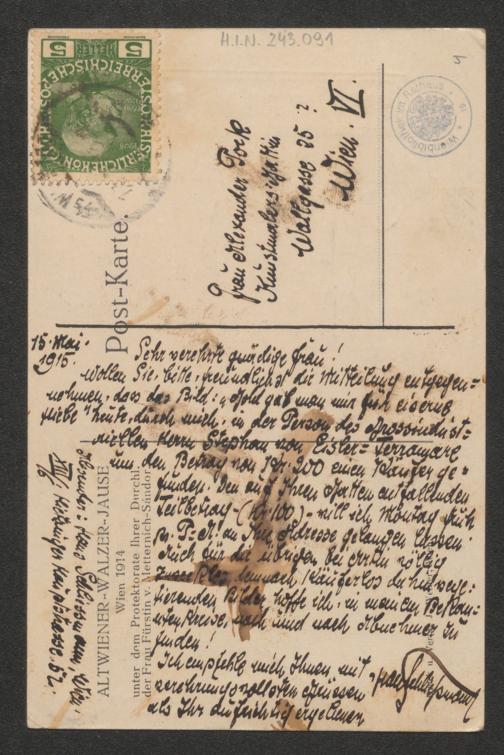 H.I.N. 243.091
5
5 HELLER 5
Wienbibliothek im Rathaus
Post-Karte.
Frau Alexander Pock
Kunstmalersgattin
Wallgasse 35?
Wien VI.
15. Mai
1915.
Sehr verehrte gnädige Frau!
Wollen Sie, bitte, freundlichst die Mitteilung entgegen=
nehmen, dass das Bild: „Gold gab man mir für eiserne
Liebe" heute, durch mich, in der Person des Grossindust=
riellen Herrn Stephan von Eisler-Terramare
um den Betrag von Kr. 200 einen Käufer ge=
funden. Den auf Ihren Gatten entfallenden
Teilbetrag - (Kr. 100) - will ich Montag früh
an Ihre Adresse gelangen lassen.
Auch für die übrigen bei
demnach käuferlos
Bilder hoffe ich, in meinem Bekann=
tenkreise, nach und nach Abnehmer zu
finden!
Ich empfehle mich Ihnen mit
verehrungsvollsten Grüssen
als Ihr aufrichtig ergebener
Absender: Hans Wien,
XIII/ Hietzinger Hauptstrasse
ALTWIENER-WALZER-JAUSE
Wien 1914
unter dem Protektorate Ihrer Durchl.
der Frau Fürstin v. Metternich-Sándor